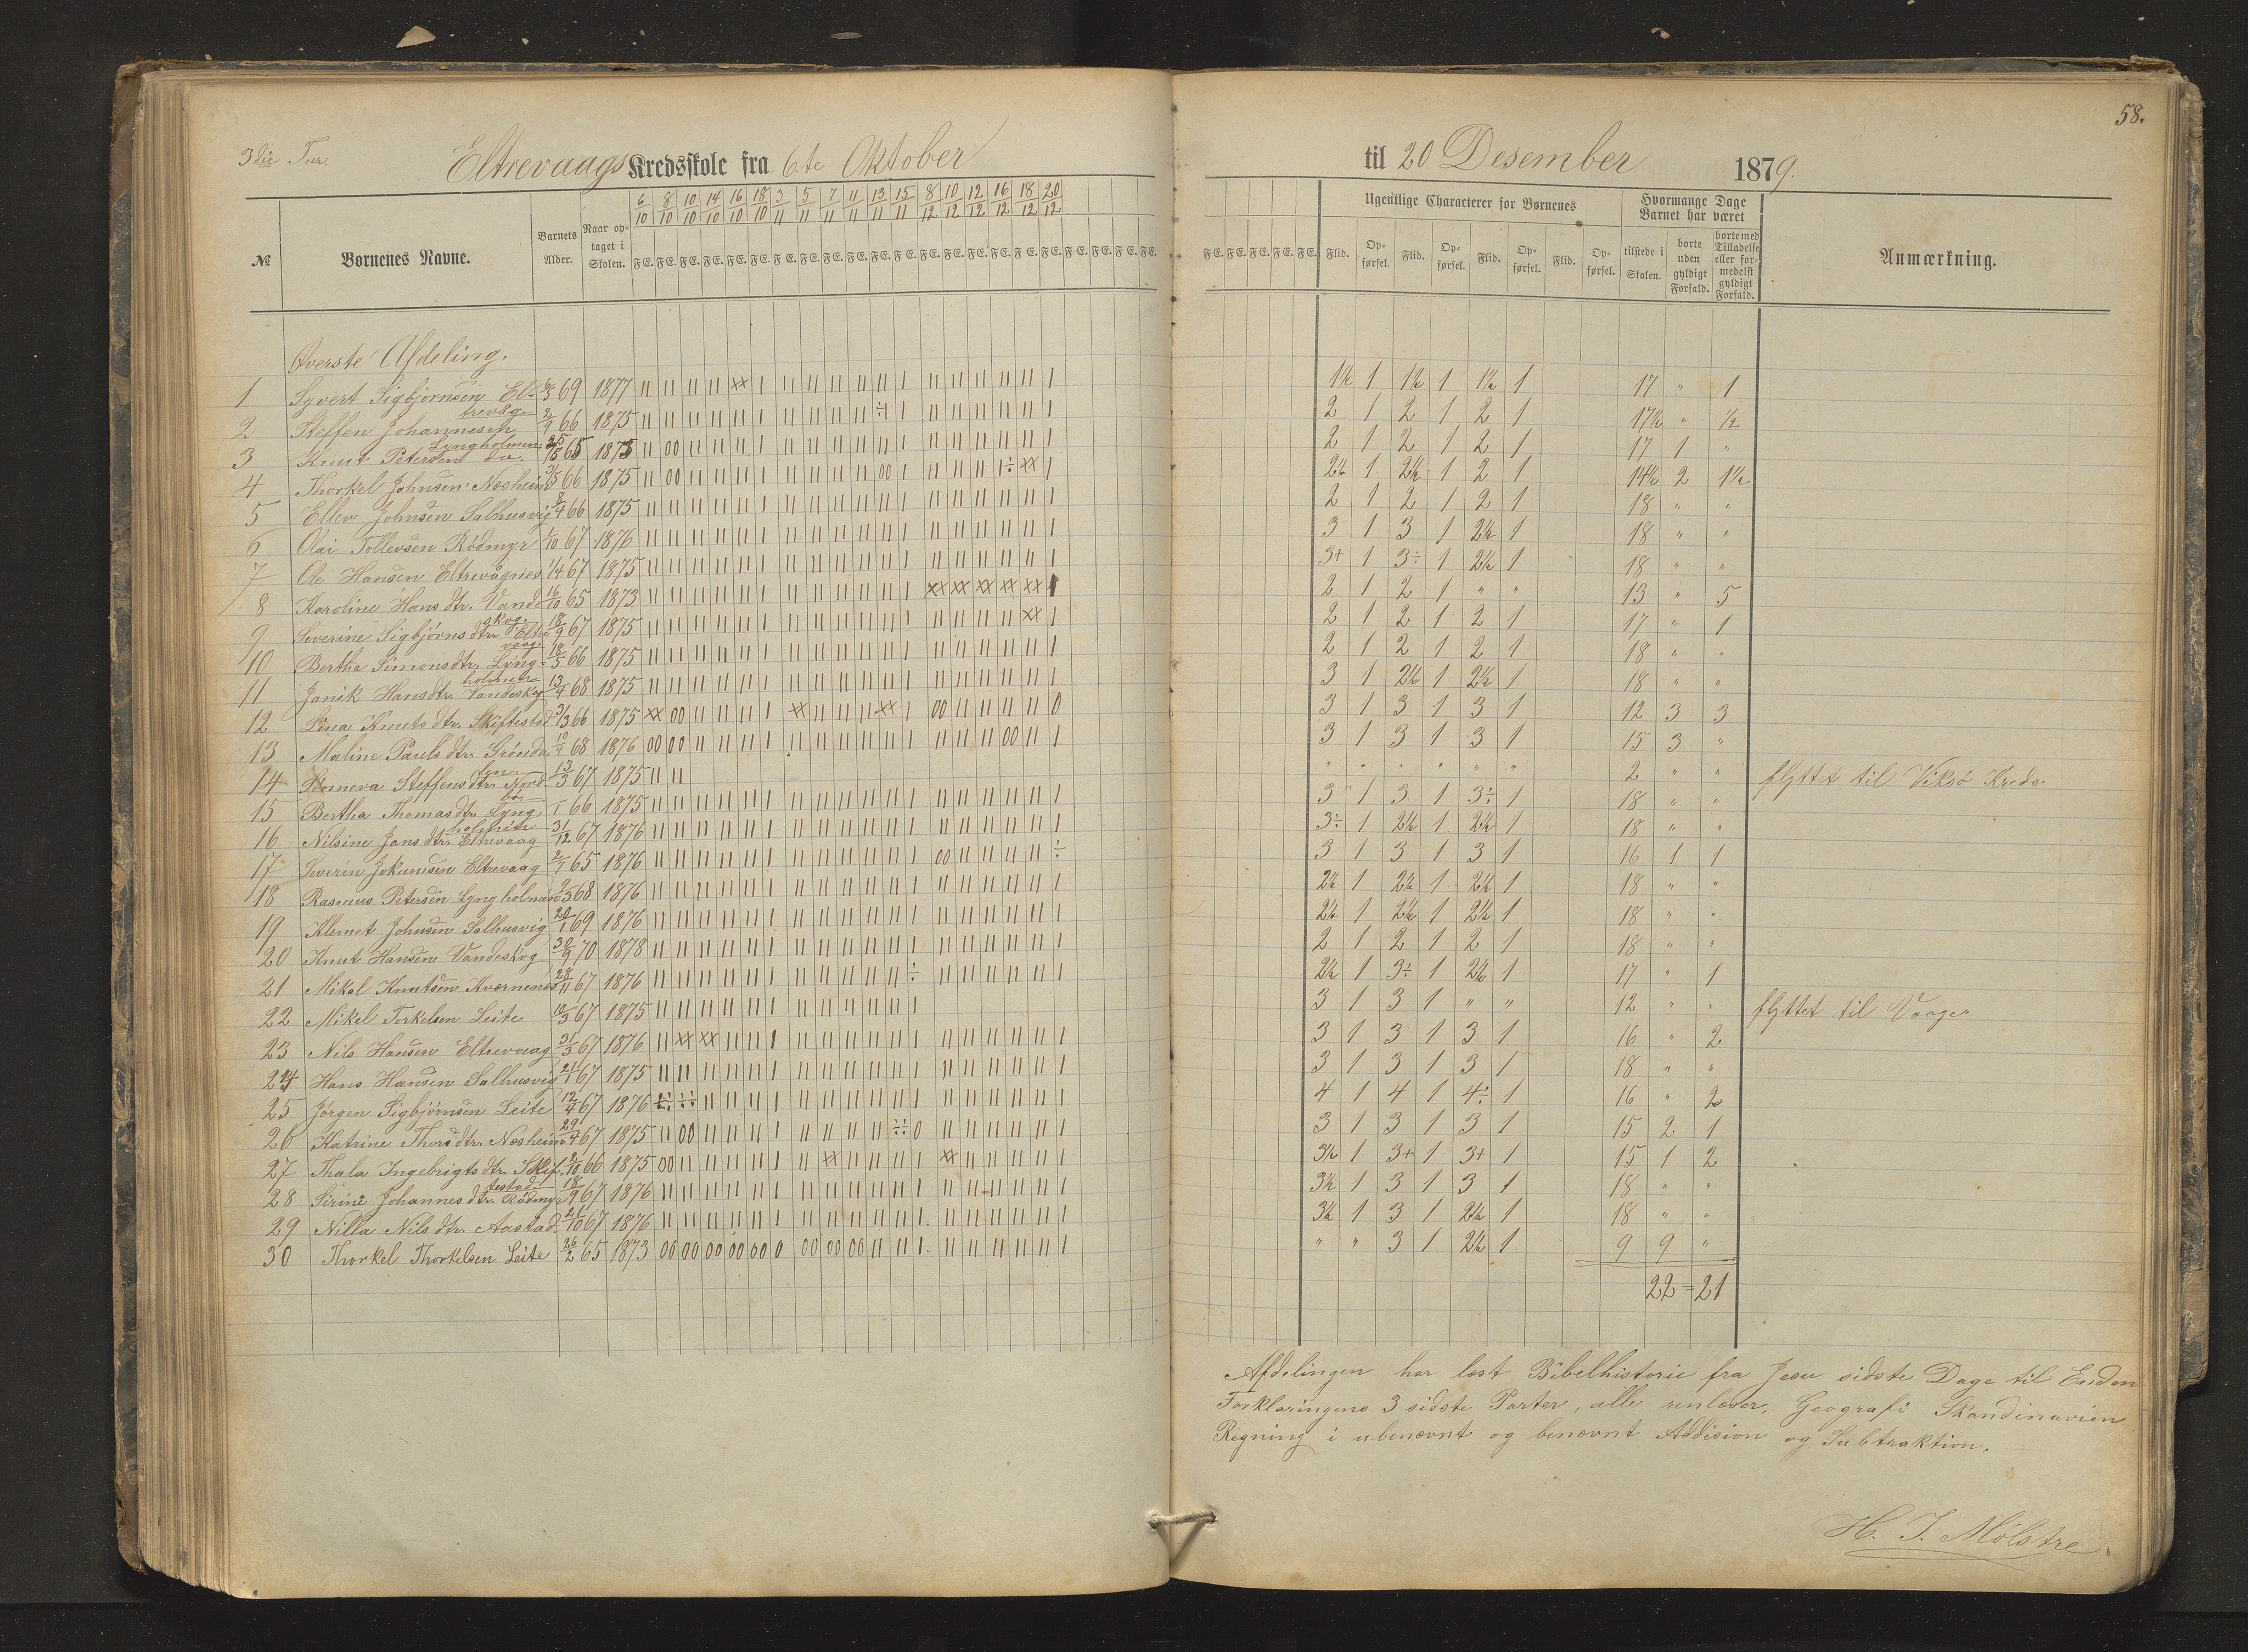 58.
3die Tur.
Eltrevaags Kredsskole fra 6.te Oktober til 20 Desember 1879.
6/10 8/10 10/10 14/10 16/10 18/10 3/11 5/11 7/11 11/11 13/11 15/11 8/12 10/12 12/12 16/12 18/12 20/12
№ Børnenes Navne. Barnets Alder. Naar optaget i Skolen. F E. F E. F E. F E. F E. F E. F E. F E. F E. F E. F E. F E. F E. F E. F E. F E. F E. F E. F E. F E. F E. F E.
Ugentlige Characterer for Børnenes
Flid. Opførsel. Flid. Opførsel. Flid. Opførsel. Flid. Opførsel.
Hvormange Dage Barnet har været
tilstede i Skolen. borte uden gyldigt Forfald. borte med Tilladelse eller formedelst gyldigt Forfald.
Anmærkning.
Øverste Afdeling.
1 Syvert Sigbjørnsen Eltrevåg 69 1877 1½ 1 1½ 1 1½ 1 17 " 1
2 Steffen Johannesen Lyngholmen 2/9 66 1875 2 1 2 1 2 1 17½ " ½
3 Knut Petersen do. 65 1875 2 1 2 1 2 1 17 1 "
4 Thorkel Johnsen Næsheim 66 1875 2½ 1 2½ 1 2 1 14½ 2 1½
5 Ellev Johnsen Salhusvig 8/4 66 1875 2 1 2 1 2 1 18 " "
6 Olai Tollevsen Rödmyr 1/10 67 1876 3 1 3 1 2½ 1 18 " "
7 Ole Hansen Eltrevågnes 1/4 67 1875 3+ 1 3÷ 1 2½ 1 18 " "
8 Karoline Hansdtr. Vandeskog 16/10 65 1873 2 1 2 1 " " 13 " 5
9 Severine Sigbjørnsdtr. Eltrevaag 18/9 67 1875 2 1 2 1 2 1 17 " 1
10 Bertha Simonsdtr. Lyngholmen 18/5 66 1875 2 1 2 1 2 1 18 " "
11 Janik Hansdtr. Vandeskog 13/4 68 1875 3 1 2½ 1 2½ 1 18 " "
12 Lina Knutsdtr. Skiftestad 3/3 66 1875 3 1 3 1 3 1 12 3 3
13 Maline Paulsdtr. Gröndalen 68 1876 3 1 3 1 3 1 15 3 "
14 Steffensdtr. Nordbö 13/3 67 1875 " " " " " " 2 " " flyttet til Viksö Kreds.
15 Bertha Thomasdtr. Lyngholmen 66 1875 3 1 3 1 3÷ 1 18 " "
16 Nilsine Jansdtr. Eltrevaag 31/12 67 1876 3÷ 1 2½ 1 2½ 1 18 " "
17 Severin Johansen Eltrevaag 2/7 65 1876 3 1 3 1 3 1 16 1 1
18 Rasmus Petersen Lyngholmen 2/3 68 1876 2½ 1 2½ 1 2½ 1 18 " "
19 Klemet Johnsen Salhusvig 20/1 69 1876 2½ 1 2½ 1 2½ 1 18 " "
20 Knut Hansen Vandeskog 30/9 70 1878 2 1 2 1 2 1 18 " "
21 Mikal Knutsen Kværnenes 28/11 67 1876 2½ 1 3÷ 1 2½ 1 17 " 1
22 Mikel Torkelsen Leite 67 1875 3 1 3 1 " " 12 " " flyttet til Vaage
23 Nils Hansen Eltrevaag 31/3 67 1876 3 1 3 1 3 1 16 " 2
24 Hans Hansen Salhusvig 21/1 67 1875 3 1 3 1 3 1 18 " "
25 Jørgen Sigbjørnsen Leite 12/4 67 1876 4 1 4 1 4÷ 1 16 " 2
26 Katrine Thorsdtr. Næsheim 67 1875 3 1 3 1 3 1 15 2 1
27 Thala Ingebrigtsdtr. Skiftestad 2/10 66 1875 3½ 1 3+ 1 3+ 1 15 1 2
28 Sirine Johannesdtr. Rödmyr 18/9 67 1876 3½ 1 3 1 3 1 18 " "
29 Nilla Nilsdtr. Aastad 21/10 67 1876 3½ 1 3 1 2½ 1 18 " "
30 Thorkel Thorkelsen Leite 26/2 65 1873 " " 3 1 2½ 1 9 9 "
22 = 21
Afdelingen har læst Bibelhistorie fra Jesu sidste Dage til Enden
Forklaringens 3 sidste Parter, alle renlæser, Geografi Skandinavien
Regning i ubenævnt og benævnt Addision og Subtraktion.
H. J. Mölstre